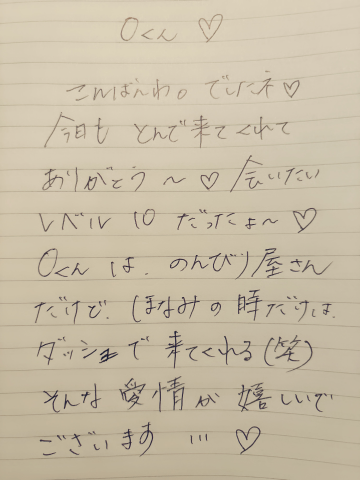 Oくん ♡
こんばんわ。でしたネ♡
今日も とんで来てくれて
ありがとう 〜 ♡ 会いたい
レベル 10 だったょ〜 ♡
Oくん は、のんびり屋さん
だけど、ほなみの時だけは、
ダッシュで 来てくれる(笑)
そんな 愛情が 嬉しいで
ございます … ♡